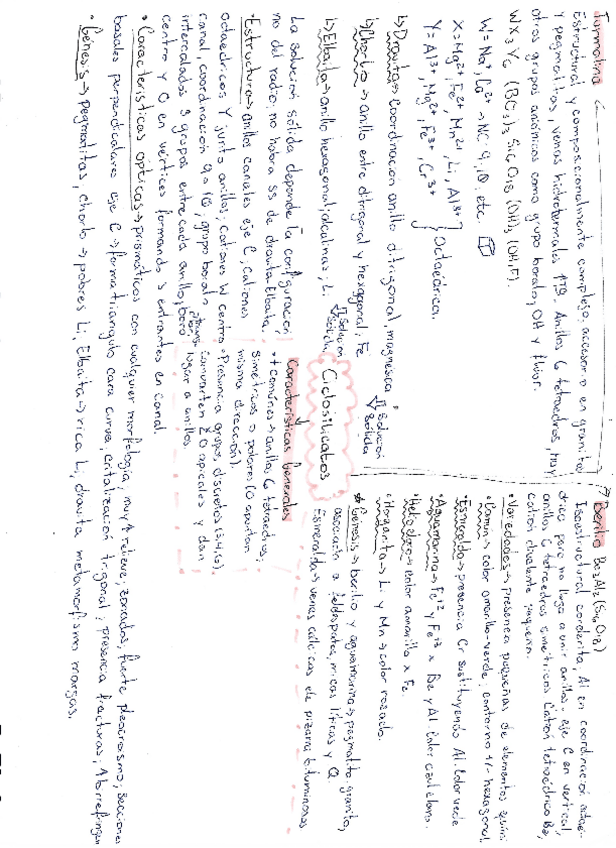 Turmalina
Estructural y composicionalmente complejo, accesorio en granitos
y pegmatitas, venas hidrotermales PTº. Anillos 6 tetraedros, hay
otros grupos aniónicos como grupo borato, OH y flúor.
WX3Y6 (BO3)3 Si6O18 (OH)3 (OH,F).
W= Na+, Ca2+ → NC 9, 10, etc.
X= Mg2+, Fe2+, Mn2+, Li, Al3+
Y= Al3+, Mg2+, Fe3+, Cr3+
Octaédrica.
↳ Dravita → coordinación anillo ditrigonal, magnésica
↳ Chorlo → anillo entre ditrigonal y hexagonal, Fe
↳ Elbaita → anillo hexagonal, alcalinas, Li
Solución
Sólida
Solución
Sólida
La solución sólida depende la configuración
no del radio; no habrá ss de dravita-Elbaita.
• Estructura → anillos canales eje C, cationes
octaédricos Y junto anillos; cationes W centro
canal, coordinación 9 o 10; grupo borato
intercalados 3 grupos entre cada anillo, boro
centro y O en vértices formando 3 entrantes en canal.
• Características ópticas → prismáticos con cualquier morfología; muy ↑ relieve; zonados; fuerte pleocroismo; secciones
basales perpendiculares eje C → forma triángulo cara curva, cristalización trigonal; presencia fracturas; ↑ birrefringen
• Génesis → pegmatitas, chorlo → pobres Li, Elbaita → rica Li, dravita metamorfismo margas.
Ciclosilicatos
Características Generales
• + comunes → anillos 6 tetraedros,
simétricos o polares (O apuntan
misma dirección).
• Presencia grupos discretos (3,4,6)
comparten 2 O apicales y dan
lugar a anillos.
Berilo Be3Al2(Si6O18)
Isoestructural cordierita, Al en coordinación octaé-
drica pero no llega a unir anillos. eje C en vertical,
anillos 6 tetraedros simétricos. Catión tetraédrico Be,
catión divalente pequeño.
• Variedades → presencia pequeñas de elementos quími
• Común → color amarillo-verde, contorno +/- hexagonal.
Esmeralda → presencia Cr sustituyendo Al. Color verde
• Aguamarina → Fe+2 y Fe+3 x Be y Al. Color azul claro.
• Heliodoro → color amarillo x Fe.
• Morganita → Li y Mn → color rosado.
• Génesis → berilio y aguamarina → pegmatita granito,
asociado a feldespatos, micas líticas y Q.
Esmeralda → venas calcicas de pizarra bituminosas